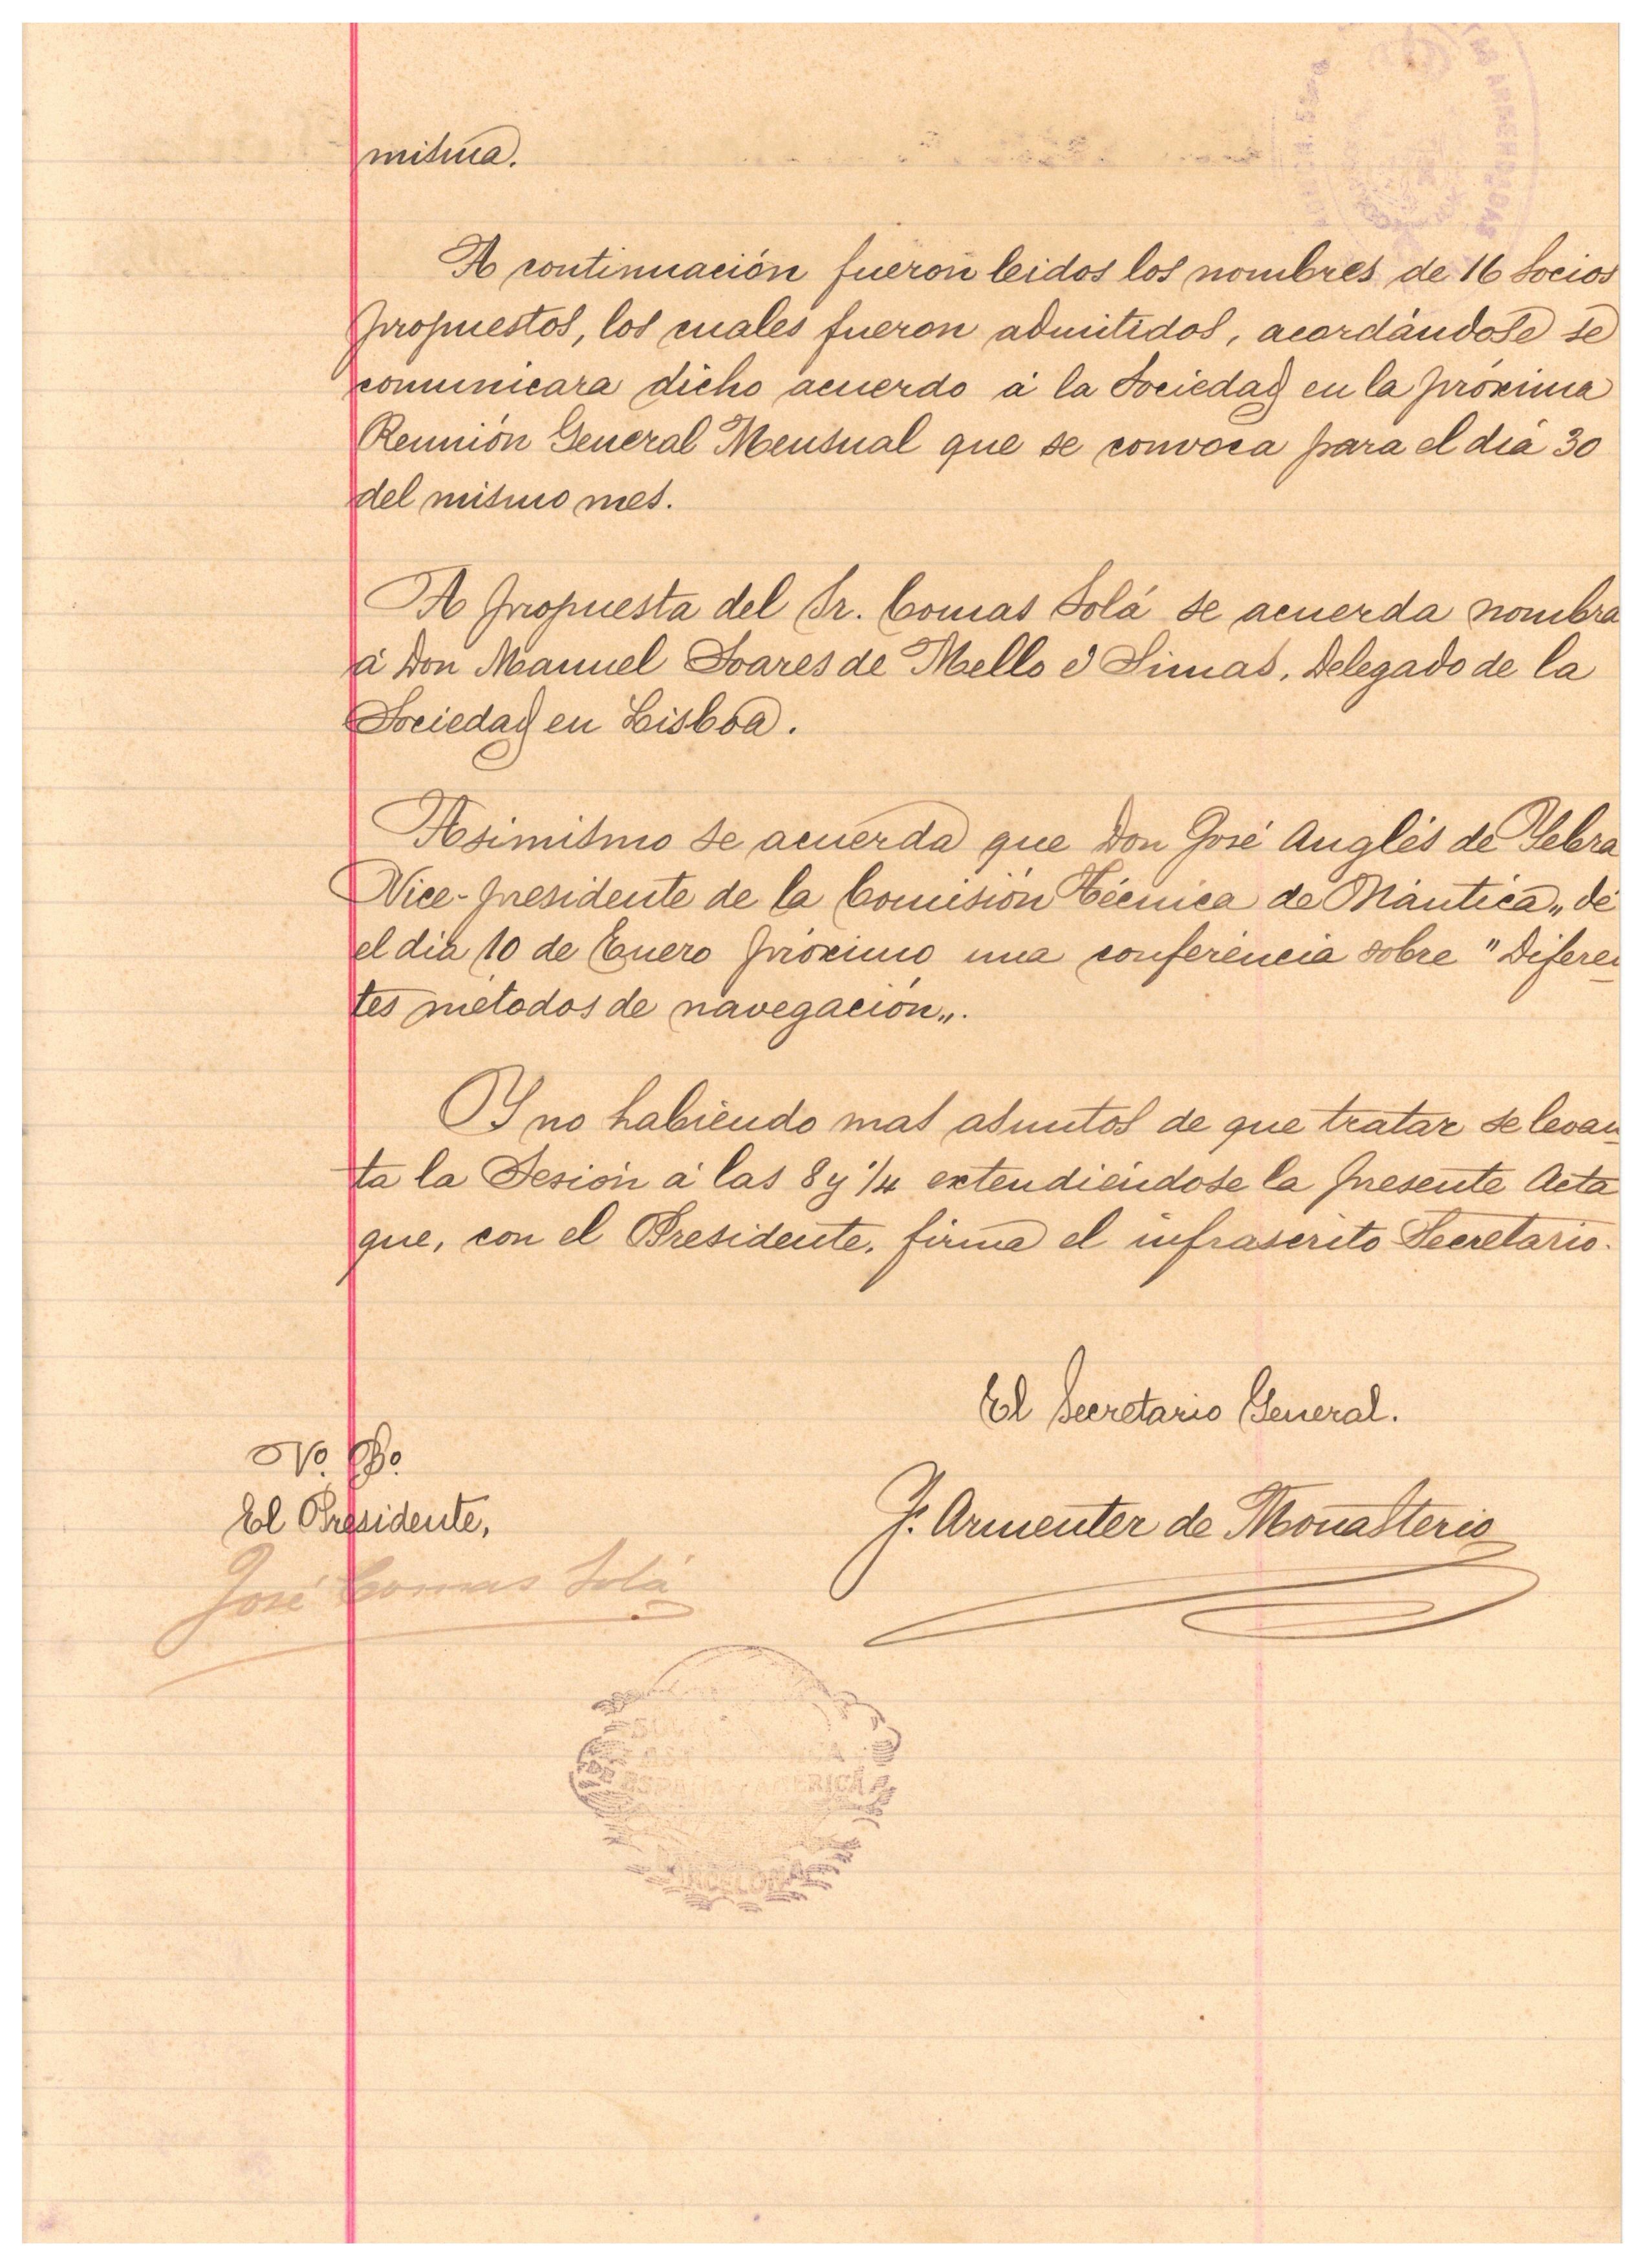 misma.
A continuación fueron leidos los nombres de 16 Socios
propuestos, los cuales fueron admitidos, acordándose se
comunicara dicho acuerdo á la Sociedad en la próxima
Reunión General Mensual que se convoca para el dia 30
del mismo mes.
A propuesta del Sr. Comas Solá se acuerda nombra
á Don Manuel Soares de Mello é Simas, Delegado de la
Sociedad en Lisboa.
Asimismo se acuerda que Don José Anglés de Yebra
Vice-presidente de la Comisión Técnica de Náutica„ dé
el dia 10 de Enero próximo una conferencia sobre "Diferen
tes métodos de navegación„.
Y no habiendo mas asuntos de que tratar se levan
ta la Sesión á las 8 y 1/4 extendiéndose la presente Acta
que, con el Presidente, firma el infrascrito Secretario.
El Secretario General.
Vo. Bo.
El Presidente,
F. Armenter de Monasterio
José Comas Solá